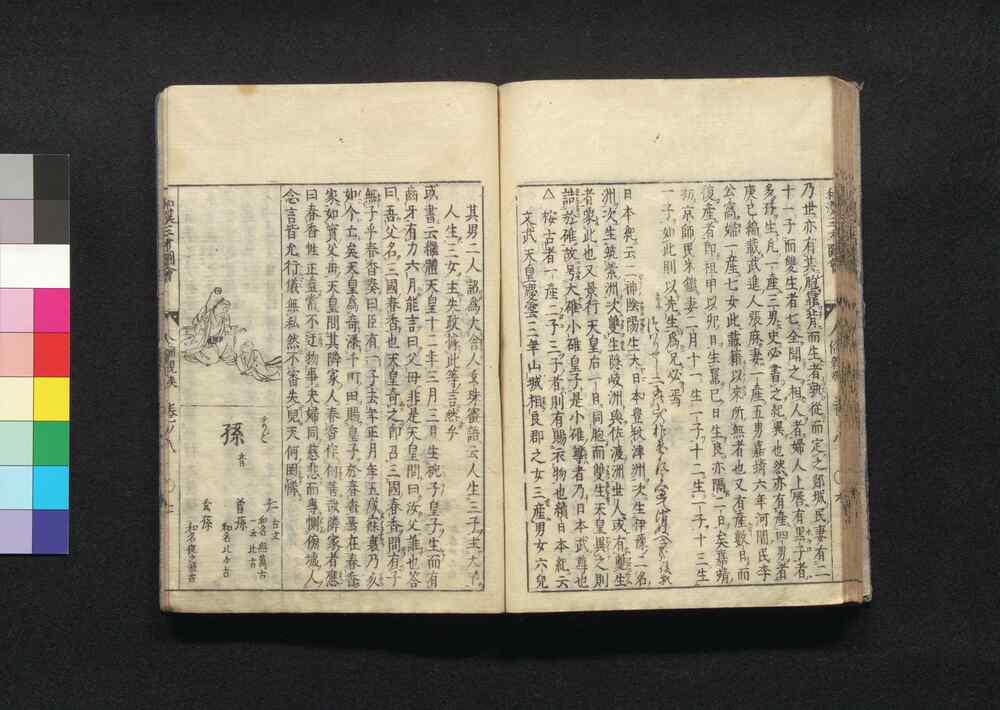 乃世亦有其脇髀背而生者孰從而定之鄖城民妻有二
十一子而雙生者七金聞之相人者婦人上唇有黒子者
多㝈生凡一産三男史必書之紀異也然亦有産四男者
庚巳編載武進人張麻妻一産五男嘉靖六年河間民李
公窩婦一産七女此載籍以來所無者也又有産數日而
復産者即祖甲以卯日生嚚已日生良亦隔一日矣嘉靖
初京師民朱鎧妻一月十一生一子十二生一子十三生
一子如此則以先生為兄必焉
日本紀云二神陰陽生大日本豊秋津洲次生伊豫二名
洲次生筑紫洲次雙生隠岐洲與佐渡洲世人或有雙生
者象此也又景行天皇后一日同胞而雙生天皇異之則
誥於碓故号大碓小碓皇子是小碓尊乃日本武尊也
△按古者一産二子三子者則有賜衣物也續日本紀云
文武天皇慶雲三年山城相良郡之女三産男女六兒
其男二人詔為大舎人又珠審語云人生三子主大平
人生三女主失政據此等言然乎
或書云継體天皇十二年三月三日生祝子皇子生而有
齒牙有力六月能言曰父母非是天皇問曰汝父誰也答
曰吾父名三國春香也天皇奇之即召三國春香問有子
無子乎春香奏曰臣有一子去年正月年五歳
如今亡矣天皇為奇漆千町田賜皇子於春香
家如實父母天皇問其隣家人春香作何善故隣家者應
曰春香性正直露不近物事夫婦同慈悲而專惻
念言皆允行儀無私然不審失兒天何因條
和漢三才圖會
孫
音
まご
古文
和名無萬古
一云比古
曽孫
和名比々古
玄孫